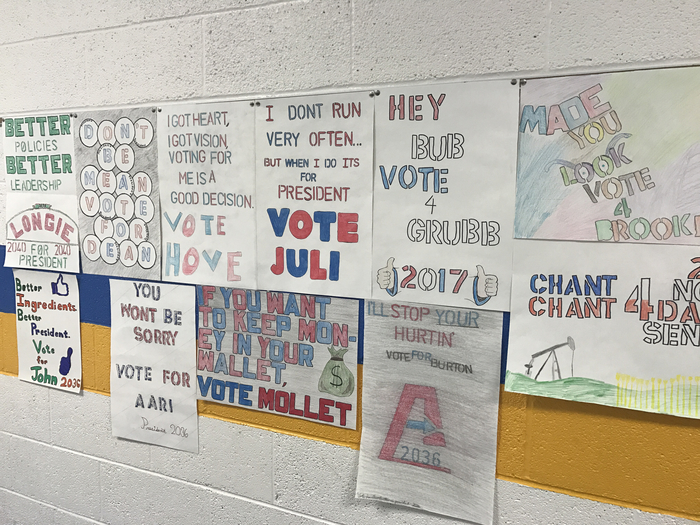 BETTER
POLICIES
BETTER
LEADERSHIP
LONGIE
2040 FOR 2040
PRESIDENT
DON'T
BE
MEAN
VOTE
FOR
DEAN
I GOT HEART,
I GOT VISION,
VOTING FOR
ME IS A
GOOD DECISION.
VOTE
HOVE
I DONT RUN
VERY OFTEN...
BUT WHEN I DO ITS
FOR
PRESIDENT
VOTE
JULI
HEY
BUB
VOTE
4
GRUBB
2017
MADE
YOU
LOOK
VOTE
4
BROOKE
Better
Ingredients.
Better
President.
Vote
for
John 2036
YOU
WONT BE
SORRY
VOTE FOR
AARI
President 2036
IF YOU WANT
TO KEEP MON-
EY IN YOUR
WALLET,
VOTE MOLLET
$
I'LL STOP YOUR
HURTIN'
VOTE FOR BURTON
2036
CHANT 4 NO
CHANT DA
SEN